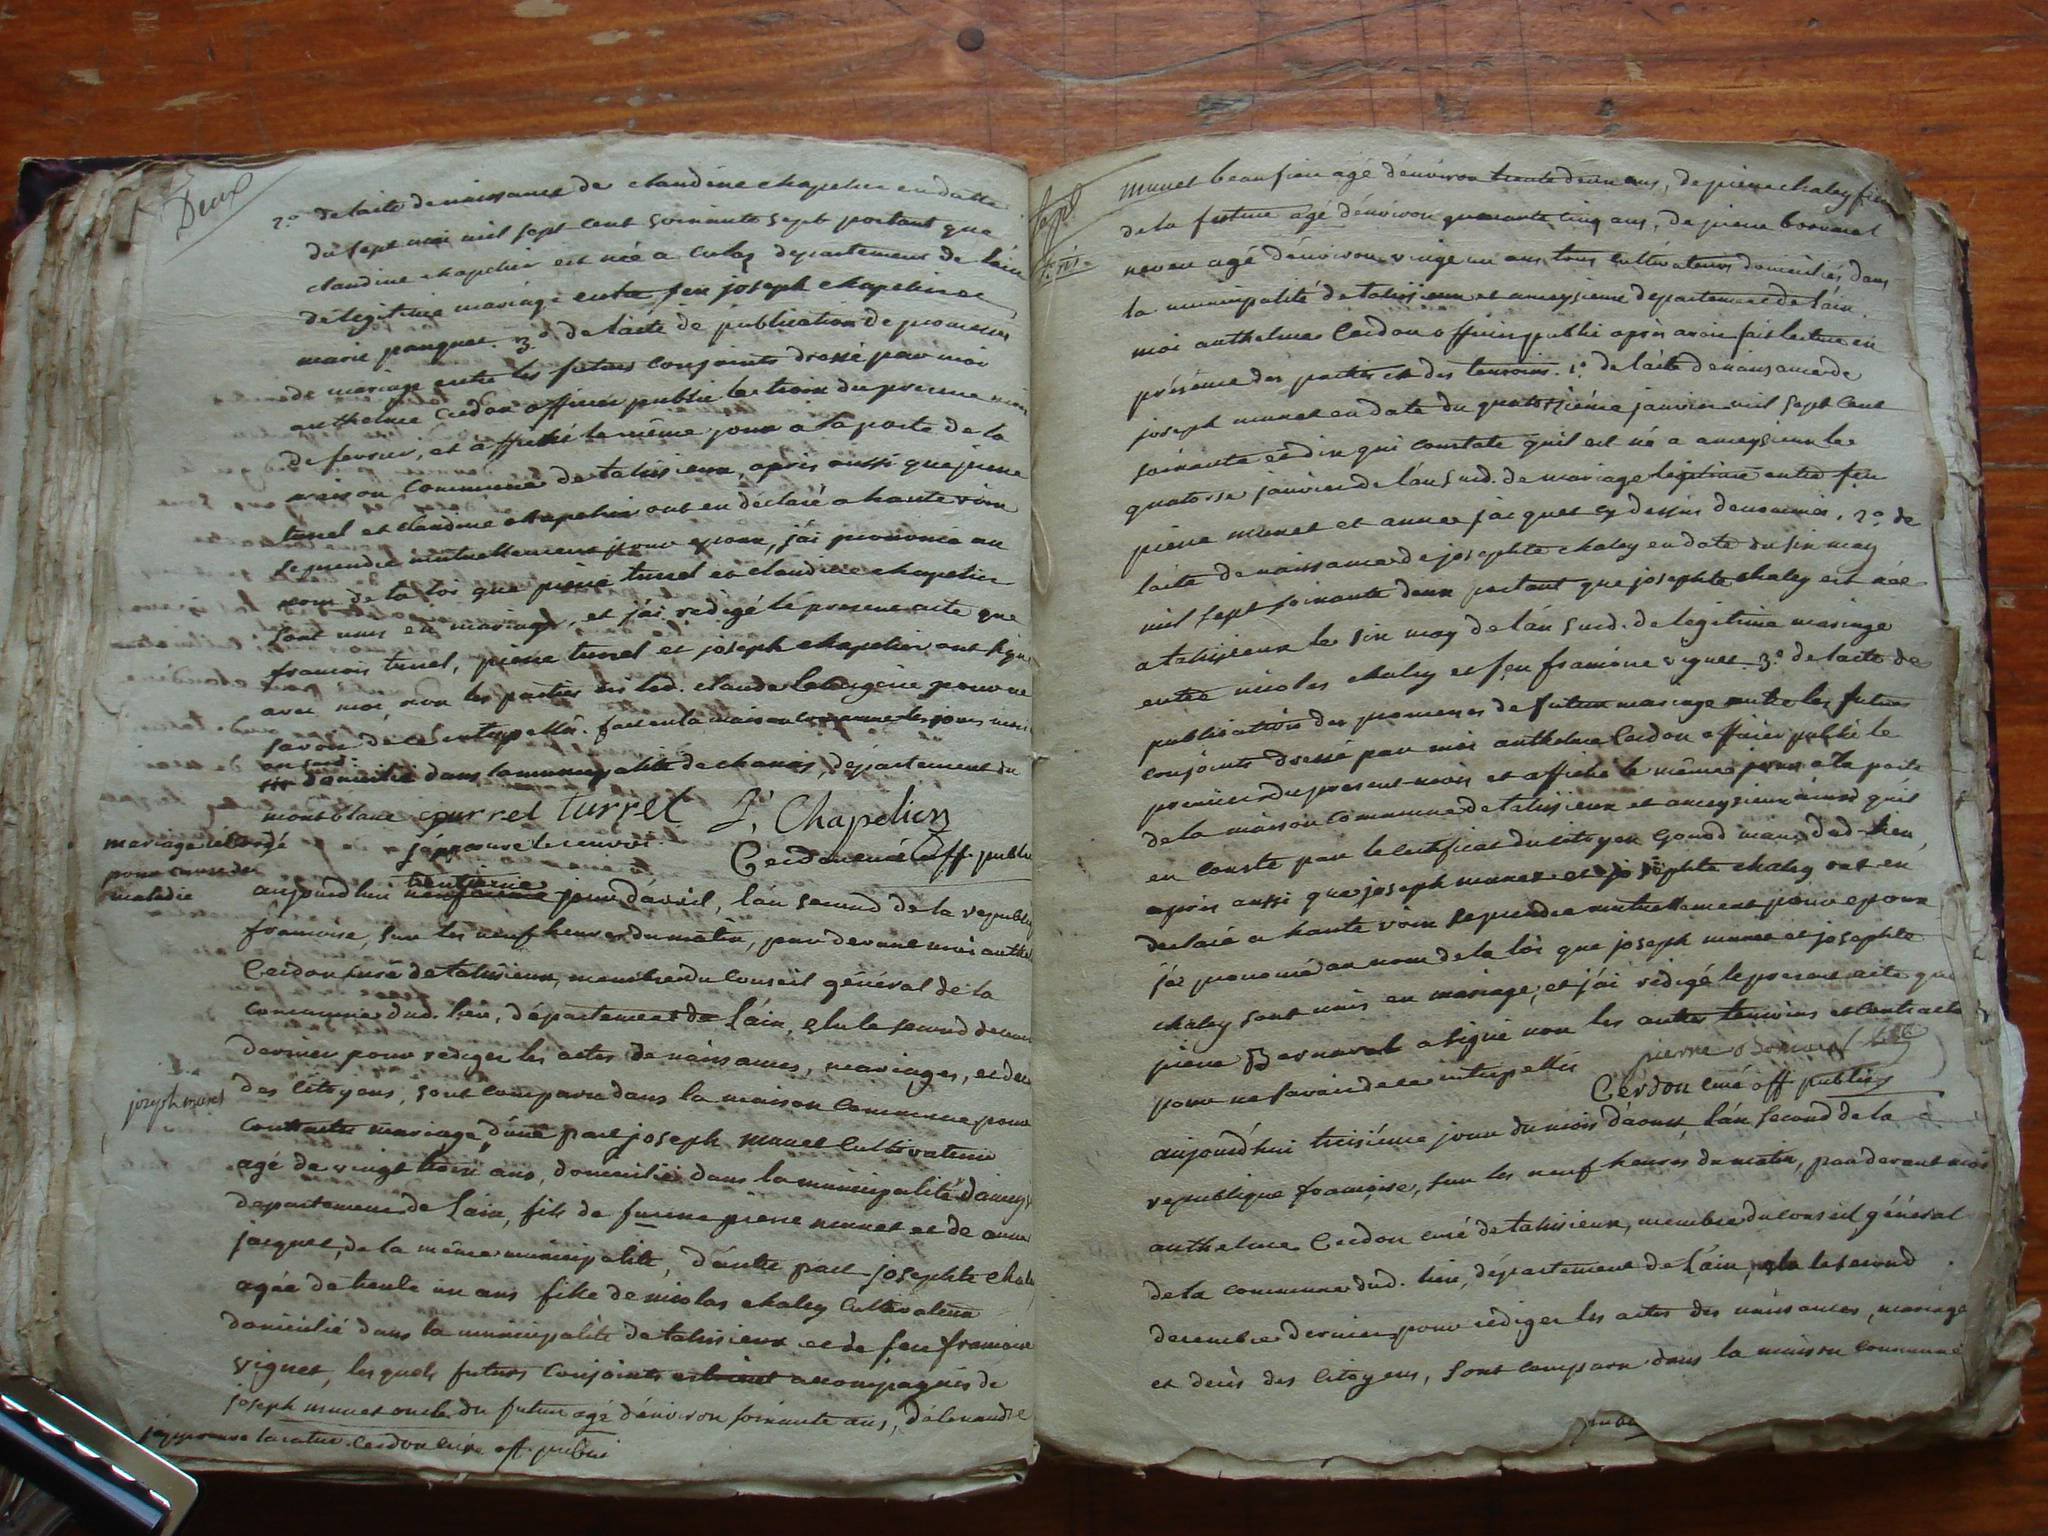 Deux
2° de l'acte de naissance de claudine chapelier en datte
du sept mai mil sept cent soixante sept portant que
claudine chapelier est née a culoz departement de l'ain
de légitime mariage entre feu joseph chapelier et
marie panquet. 3° de l'acte de publication de promesses
de mariage entre les futurs conjoints dressé par moi
anthelme Cerdon officier public le trois du premier mois
de fevrier, et affiché le même jour a la porte de la
maison commune de talissieux, apres aussi que pierre
turrel et claudine chapelier ont eu déclaré a haute voix
se prendre mutuellement pour epoux, j'ai prononcé au
nom de la loi que pierre turrel et claudine chapelier
sont unis en mariage, et j'ai redigé le present acte que
francois turrel, pierre turrel et joseph chapelier ont signé
avec moi non les parties ni led. claude pour ne
savoir de ce interpellés. fait en la maison commune les jours mois
an susd:
domicilié dans la municipalité de chanas, département du
montblanc turrel turrel J, Chapelier
j'approuve le renvoi.
Cerdon curé off. public
mariage
pour cause de
maladie
aujourdhui trentieme jour d'avril, l'an second de la republique
francoise, sur les neuf heures du matin, par devant moi anthelme
Cerdon curé de talissieux, membre du Conseil général de la
commune dud. lieu, département de l'ain, elu le second decembre
dernier pour rediger les actes de naissances, mariages, et decès
des Citoyens, sont comparu dans la maison commune pour
joseph munet
contracter mariage d'une part joseph munet Cultivateur
agé de vingt trois ans, domicilié dans la municipalité d'ameysieux
departement de l'ain, fils de pierre munet et de anne
jacquet, de la même municipalité, d'autre part josephte chaley
agée de trente un ans fille de nicolas chaley Cultivateur
domicilié dans la municipalité de talissieux et de feu francoise
viguet, lesquels futurs conjoints etoient accompagnés de
joseph munet oncle du futur agé d'environ soixante ans, d'alexandre
j'approuve la rature. Cerdon curé off. public
munet beaufrere agé d'environ trente deux ans, de pierre chaley frere
de la future agé d'environ quarante cinq ans, de pierre bornarel
neveu agé d'environ vingt un ans tous cultivateurs domiciliés dans
la municipalité de talissieux et ameysieux departement de l'ain.
moi anthelme Cerdon officier public après avoir fait lecture en
présence des parties et des temoins. 1° de l'acte de naissance de
joseph munet en date du quatorzième janvier mil sept cent
soixante et dix qui constate quil est né a ameysieux le
quatorze janvier de l'an susd. de mariage légitime entre feu
pierre munet et anne jacquet cy dessus denommés. 2° de
l'acte de naissance de josephte chaley en date du six may
mil sept soixante deux portant que josephte chaley est née
a talissieux le six may de l'an susd. de legitime mariage
entre nicolas chaley et feu francoise viguet. 3° de l'acte de
publication des promesses de futur mariage entre les futurs
conjoints dressé par moi anthelme Cerdon officier public le
premier du present mois et affiché le même jour a la porte
de la maison commune de talissieux et ameysieux ainsi quil
en conste par le certificat du citoyen maire dud. lieu,
après aussi que joseph munet et josephte chaley ont eu
declaré a haute voix se prendre mutuellement pour epoux
j'ai prononcé au nom de la loi que joseph munet et josephte
chaley sont unis en mariage, et j'ai rédigé le present acte que
pierre Bornarel a signé non les autres temoins et contractants
pour ne savoir de ce interpellés
pierre Bornarel
Cerdon curé off public
aujourd'hui troisième jour du mois d'aoust, l'an second de la
republique francoise, sur les neuf heures du matin, par devant moi
anthelme Cerdon curé de talissieux, membre du conseil général
de la commune dud. lieu, département de l'ain, elu le second
decembre dernier pour rédiger les actes des naissances, mariage
et decès des Citoyens, sont comparu dans la maison commune